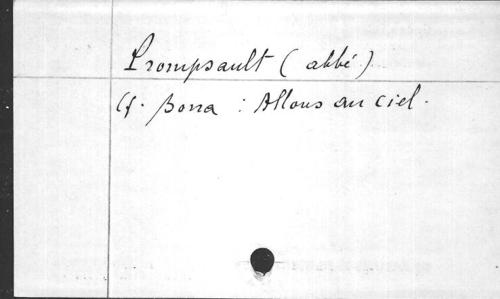 Prompsault (abbé)
Cf. Bona : Allons au ciel.